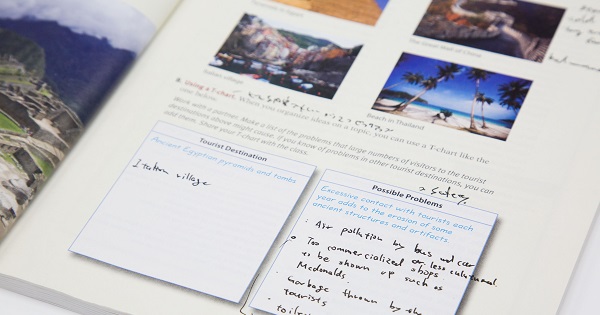 Pyramids in Egypt
The Great Wall of China
Italian village
Beach in Thailand
B. Using a T-chart. When you organize ideas on a topic, you can use a T-chart like the
one below.
Work with a partner. Make a list of the problems that large numbers of visitors to the tourist
destinations above might cause. If you know of problems in other tourist destinations, you can
add them. Share your T-chart with the class.
Tourist Destination
Ancient Egyptian pyramids and tombs
Italian village
Possible Problems
Excessive contact with tourists each
year adds to the erosion of some
ancient structures and artifacts.
Air pollution by bus and car
Too commercialized or less cultural
shops
to be shown up such as
Mcdonalds
Garbage thrown by the
tourists